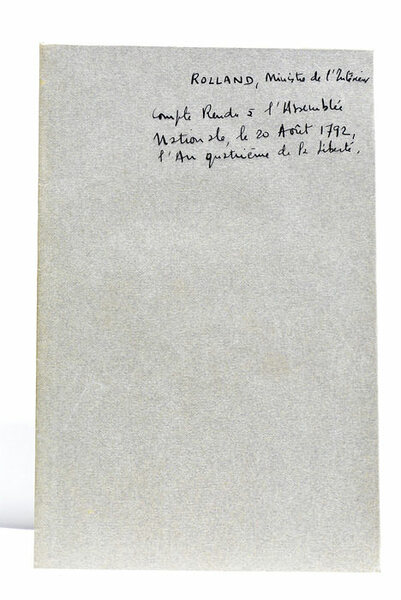 ROLLAND, Ministre de l'Intérieur
Compte Rendu à l'Assemblée
Nationale, le 20 Août 1792,
l'An quatrième de la Liberté.